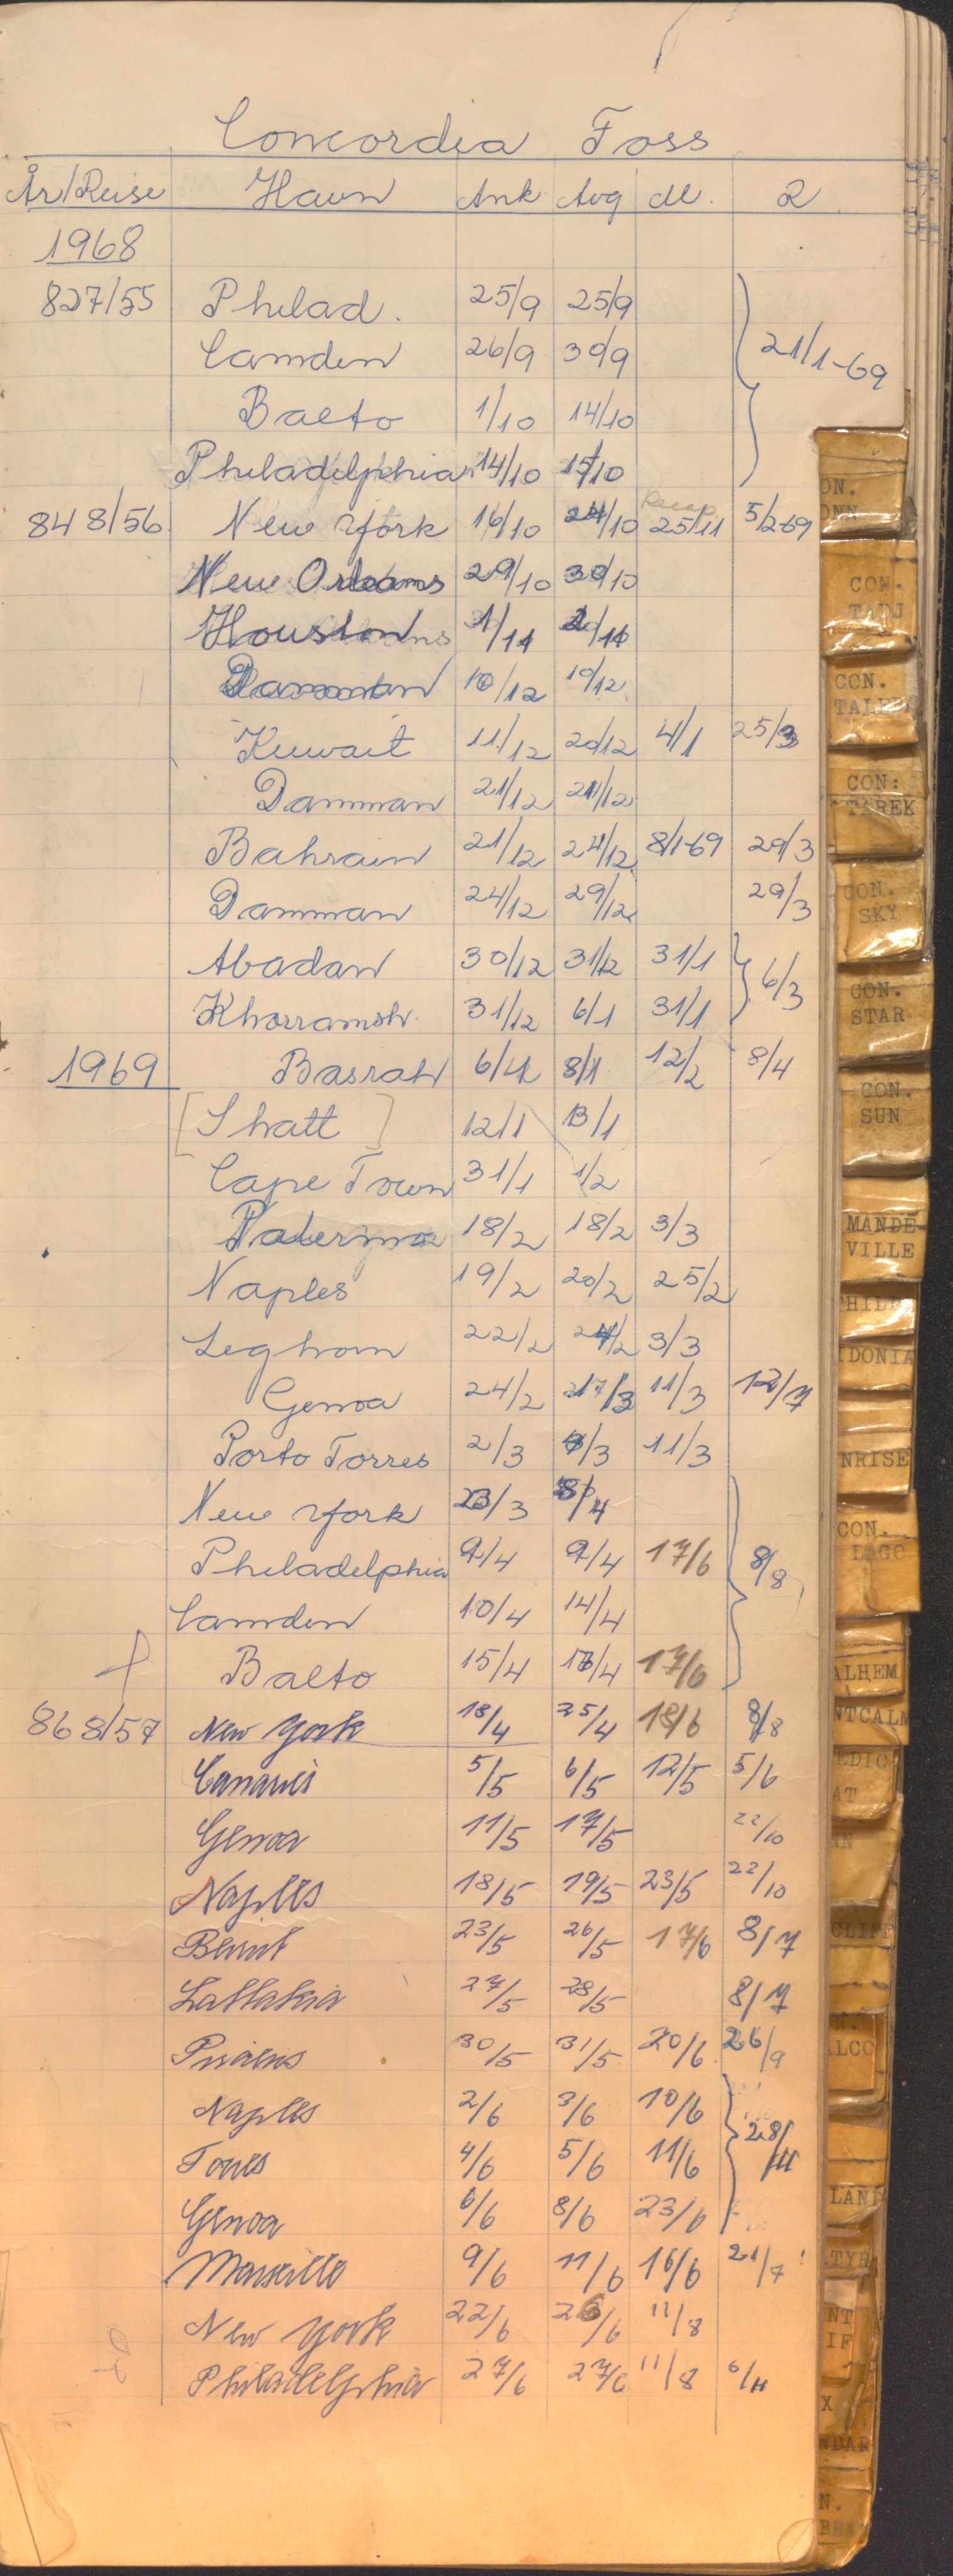 Concordia Foss
År/Reise Havn Ank Avg M. R
1968
827/55 Philad. 25/9 25/9
Camden 26/9 30/9 21/1-69
Balto 1/10 14/10
Philadelphia 14/10 15/10
848/56 New York 16/10 24/10 25/11 5/2-69
New Orleans 29/10 30/10
Houston 1/11
Damman 10/12 10/12
Kuwait 11/12 20/12 4/1 25/3
Damman 21/12 21/12
Bahrain 21/12 24/12 8/1-69 29/3
Damman 24/12 29/12 29/3
Abadan 30/12 31/12 31/1 6/3
Khorramsh. 31/12 6/1 31/1
1969 Basrah 8/1 12/2 8/4
[Shatt] 12/1 13/1
Cape Town 31/1 1/2
Palermo 18/2 18/2 3/3
Naples 19/2 20/2 25/2
Leghorn 22/2 24/2 3/3
Genoa 24/2 11/3 12/7
Porto Torres 2/3 11/3
New York 23/3 8/4
Philadelphia 9/4 9/4 17/6 8/8
Camden 10/4 14/4
Balto 15/4 17/6
868/57 New York 18/4 25/4 18/6 8/8
Canaries 5/5 6/5 12/5 5/6
Genoa 11/5 17/5 22/10
Naples 18/5 19/5 23/5 22/10
Beirut 23/5 26/5 17/6 8/7
Lattakia 27/5 28/5 8/7
Piraeus 30/5 31/5 20/6 26/9
Naples 2/6 3/6 10/6 28/11
Torres 4/6 5/6 11/6
Genoa 6/6 8/6 23/6
Marseille 9/6 11/6 16/6 21/7
New York 22/6 11/8
Philadelphia 27/6 27/6 11/8 6/11
CON.
TADJ
CON.
CON:
TAREK
CON.
SKY
CON.
STAR
CON.
SUN
MANDE
VILLE
IDONIA
NRISE
CON.
LAGO
ALHEM
NTCALM